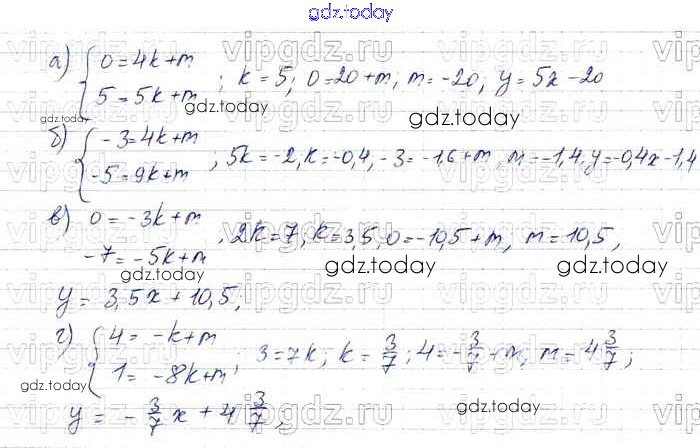 gdz.today
а) { 0 = 4k + m
5 = 5k + m ; k = 5; 0 = 20 + m; m = -20, y = 5x - 20
gdz.today
gdz.today
gdz.today
б) { -3 = 4k + m
-5 = 9k + m ; 5k = -2, k = -0,4, -3 = -1,6 + m, m = -1,4. y = -0,4x - 1,4
в) 0 = -3k + m
-7 = -5k + m , 2k = 7, k = 3,5, 0 = -10,5 + m, m = 10,5,
gdz.today
gdz.today
gdz.today
y = 3,5x + 10,5;
г) { 4 = -k + m
1 = -8k + m ; 3 = 7k; k = 3/7; 4 = -3/7 + m, m = 4 3/7;
gdz.today
y = - 3/7 x + 4 3/7,
gdz.today
vipgdz.ru vipgdz.ru vipgdz.ru